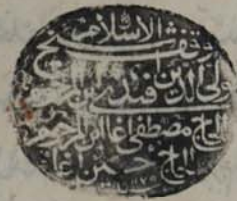 وقف شيخ الاسلام
ولي الدين افندي بن المرحوم
الحاج مصطفى اغا ابن المرحوم
الحاج حسين اغا